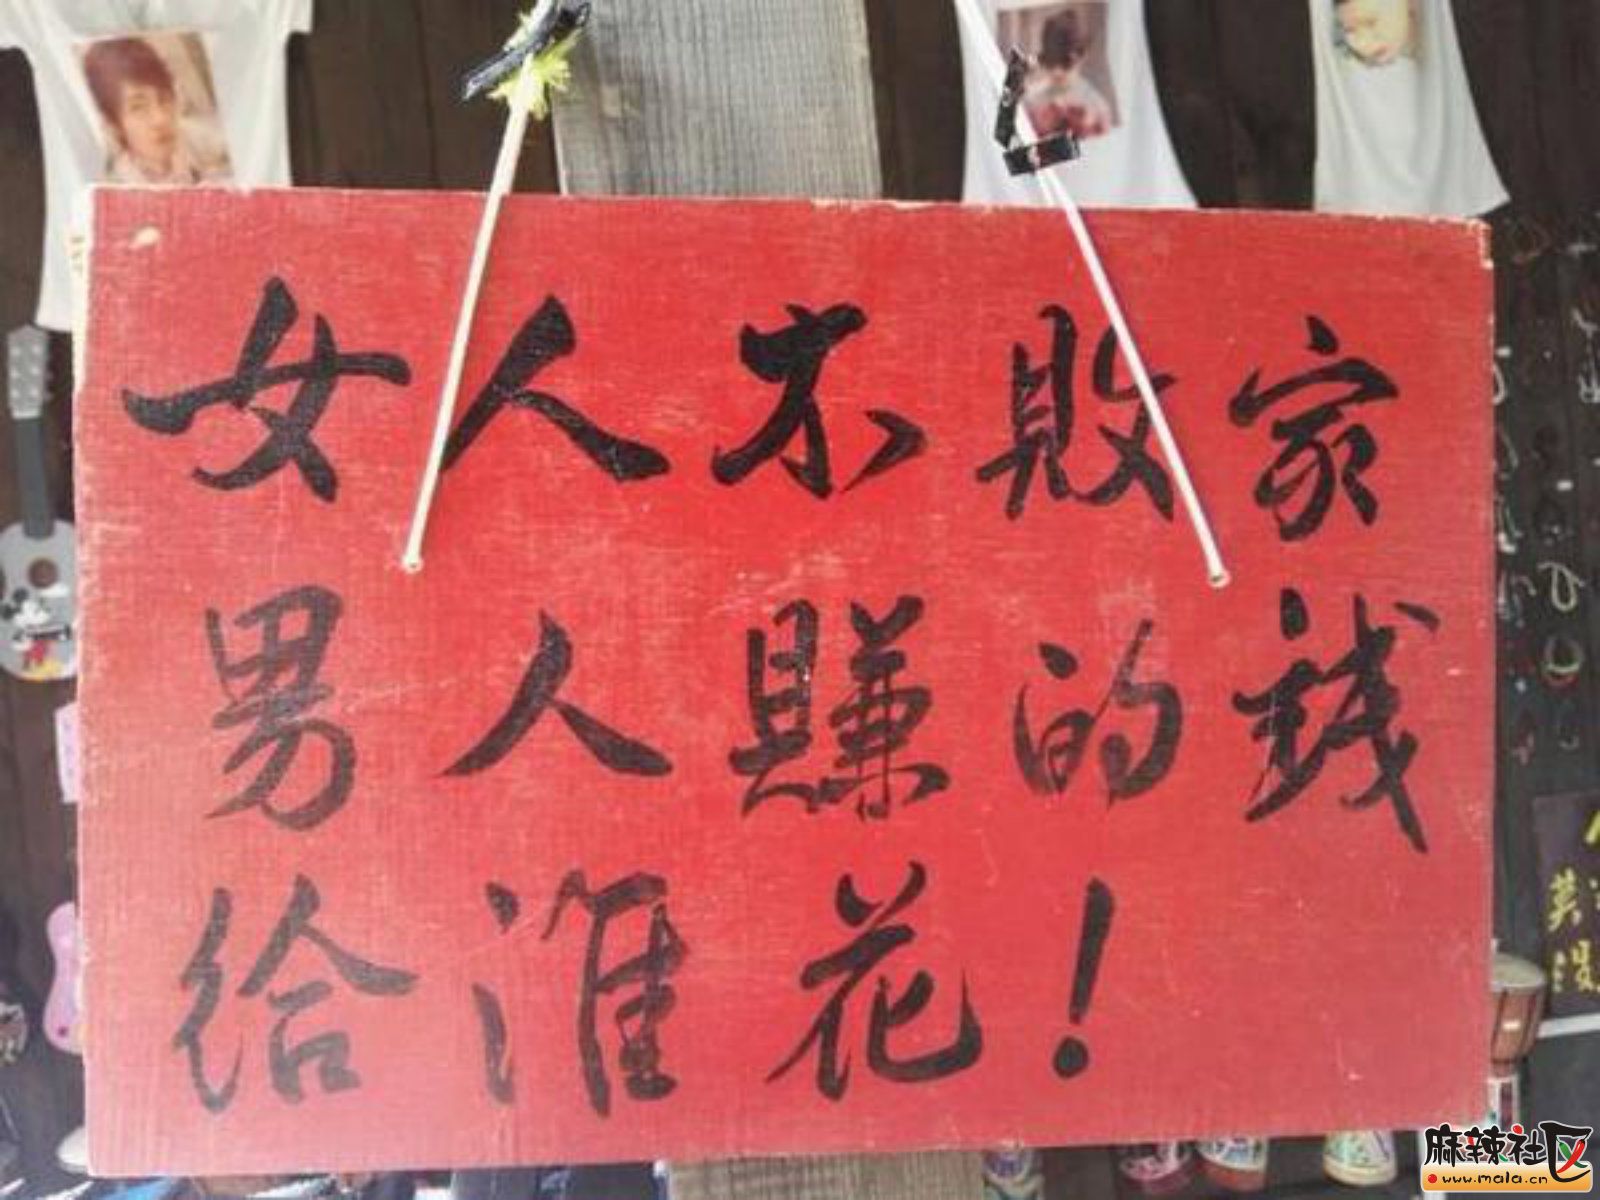 女人不敗家
男人賺的錢
给谁花！
麻辣社区
www.mala.cn